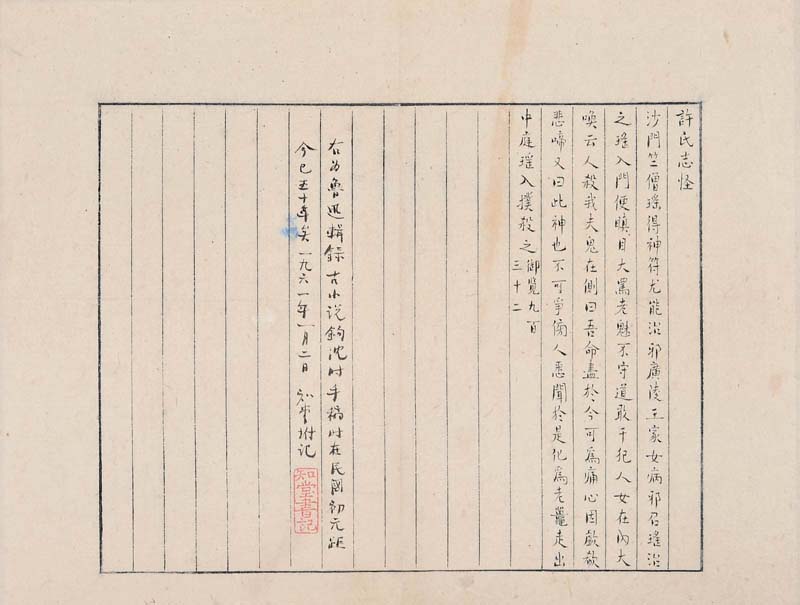 許氏志怪
沙門竺僧瑤得神符尤能治邪廣陵王家女病邪召瑤治
之瑤入門便瞋目大罵老魅不守道敢干犯人女在內大
喚云人殺我夫鬼在側曰吾命盡於今可爲痛心因歔欷
悲啼又曰此神也不可爭傍人悉聞於是化爲老鼉走出
中庭瑤入撲殺之御覽九百
三十二
右为魯迅輯録古小说鈎沈时手稿时在民國初元距
今已五十年矣一九六一年一月二日 知堂坿记
知堂書記